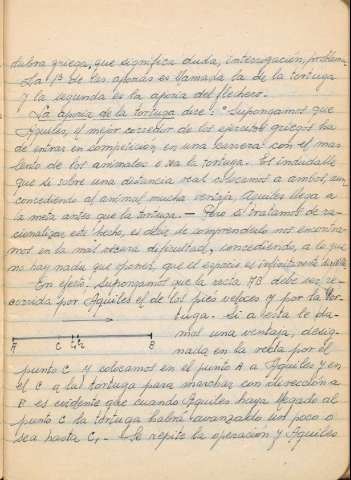 labra griega, que significa duda, interrogación, problema.
La 1ª de las aporías es llamada la de la tortuga
y la segunda es la aporía del flechero.
La aporía de la tortuga dice: "Supongamos que
Aquiles, el mejor corredor de los ejercitos griegos ha
de entrar en competición en una carrera con el mas
lento de los animales o sea la tortuga. Es indudable
que si sobre una distancia real colocamos a ambos, aun
concediendo al animal mucha ventaja, Aquiles llega a
la meta antes que la tortuga. — Pero si tratamos de ra-
cionalizar este hecho, es decir, de comprenderlo nos encontra-
mos en la mas oscura dificultad, concediendo, a lo que
no hay nada que oponer, que el espacio es infinitamente divisible.
En efecto, supongamos que la recta AB debe ser re-
corrida por Aquiles el de los pies veloces y por la tor-
tuga. Si a esta le da-
mos una ventaja, desig-
nada en la recta por el
A C C₁ C₂ B
punto C y colocamos en el punto A a Aquiles y en
el C a la tortuga para marchar con dirección a
B es evidente que cuando Aquiles haya llegado al
punto C la tortuga habrá avanzado un poco o
sea hasta C₁. — Se repite la operación y Aquiles